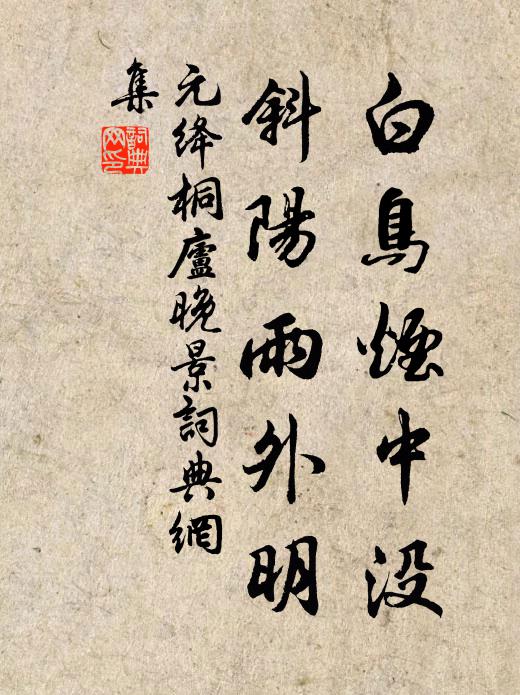 白鳥煙中没
斜陽雨外明
元絳桐廬晚景詞典網
集
詞典網印